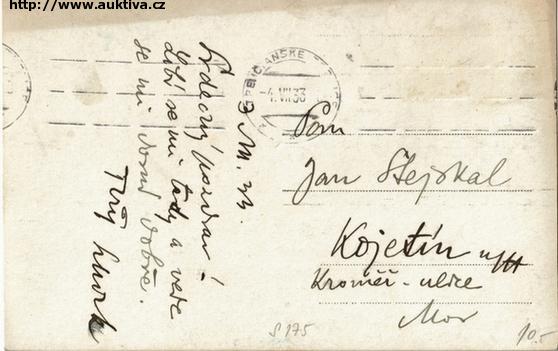 http://www.auktiva.cz
3 VII. 33.
Srdečný pozdrav!
Líbí se mi tady a vede
se mi domů dobře.
Tvůj
TRENČIANSKE TEPLICE
-4.VII.33
Pan
Jan Stejskal
Kojetín
Kroměř-ulice
Mor
S 175
10.-